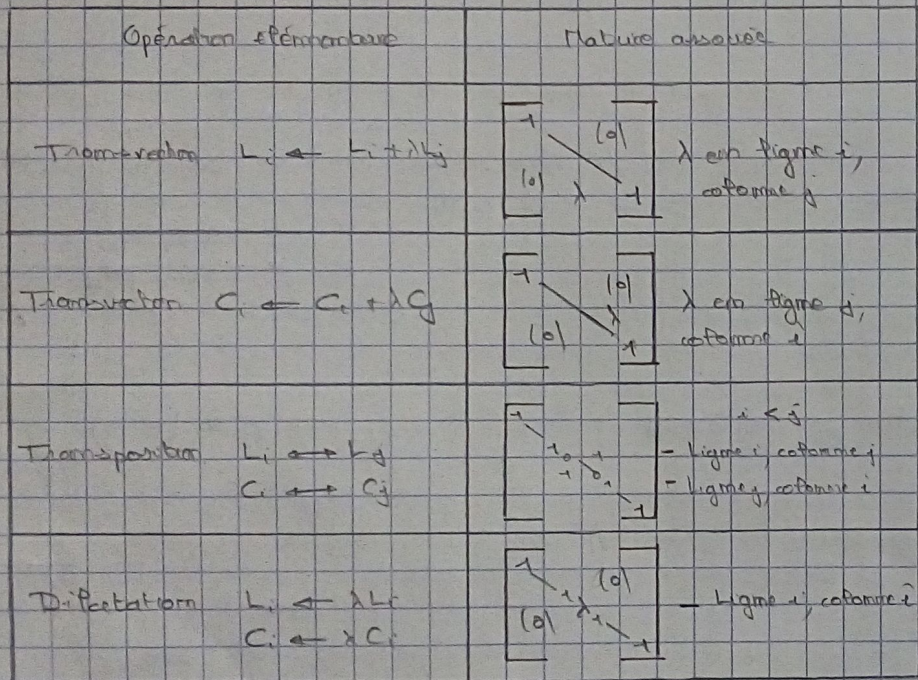 Opération élémentaire Matrice associée
Transvection Li ← Li + λLj
1 (0)
(0) λ 1
λ en ligne i,
colonne j
Transvection Ci ← Ci + λCj
1 (0)
λ
(0) 1
λ en ligne j,
colonne i
Transposition Li ↔ Lj
Ci ↔ Cj
1
1 0 1
1 0 1
1
i < j
- Ligne i, colonne j
- Ligne j, colonne i
Dilatation Li ← λLi
Ci ← λCi
1 (0)
1 λ 1
(0) 1
- Ligne i, colonne i